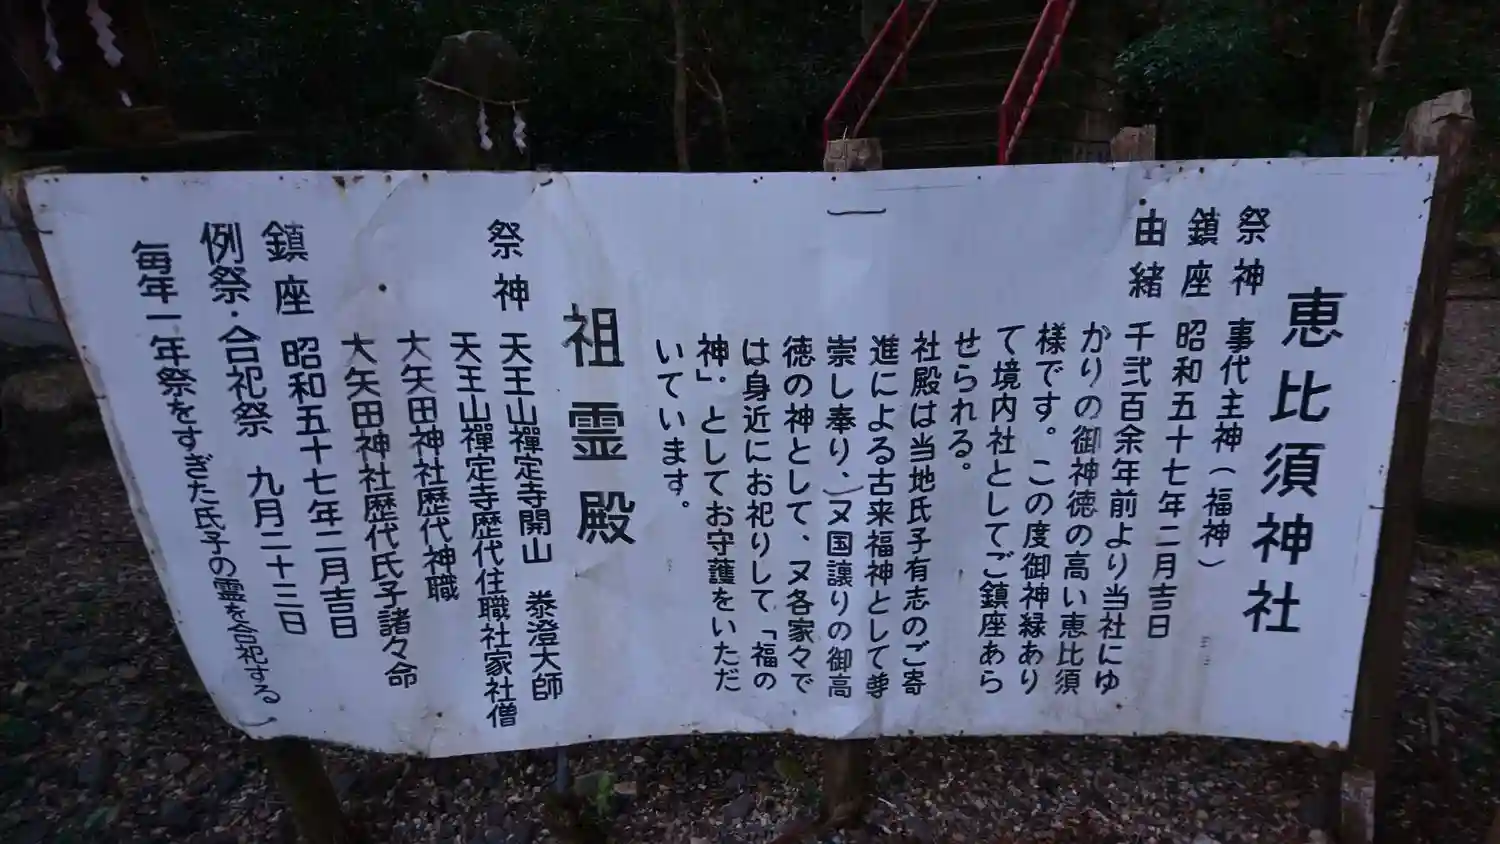 恵比須神社
祭神 事代主神(福神)
鎮座 昭和五十七年二月吉日
由緒 千弐百余年前より当社にゆ
かりの御神徳の高い恵比須
様です。この度御神縁あり
て境内社としてご鎮座あら
せられる。
社殿は当地氏子有志のご寄
進による古来福神として尊
崇し奉り、又国譲りの御高
徳の神として、又各家々で
は身近にお祀りして「福の
神」としてお守護をいただ
いています。
祖霊殿
祭神 天王山禪定寺開山 泰澄大師
天王山禪定寺歴代住職社家社僧
大矢田神社歴代神職
大矢田神社歴代氏子諸々命
鎮座 昭和五十七年二月吉日
例祭・合祀祭 九月二十三日
毎年一年祭をすぎた氏子の霊を合祀する